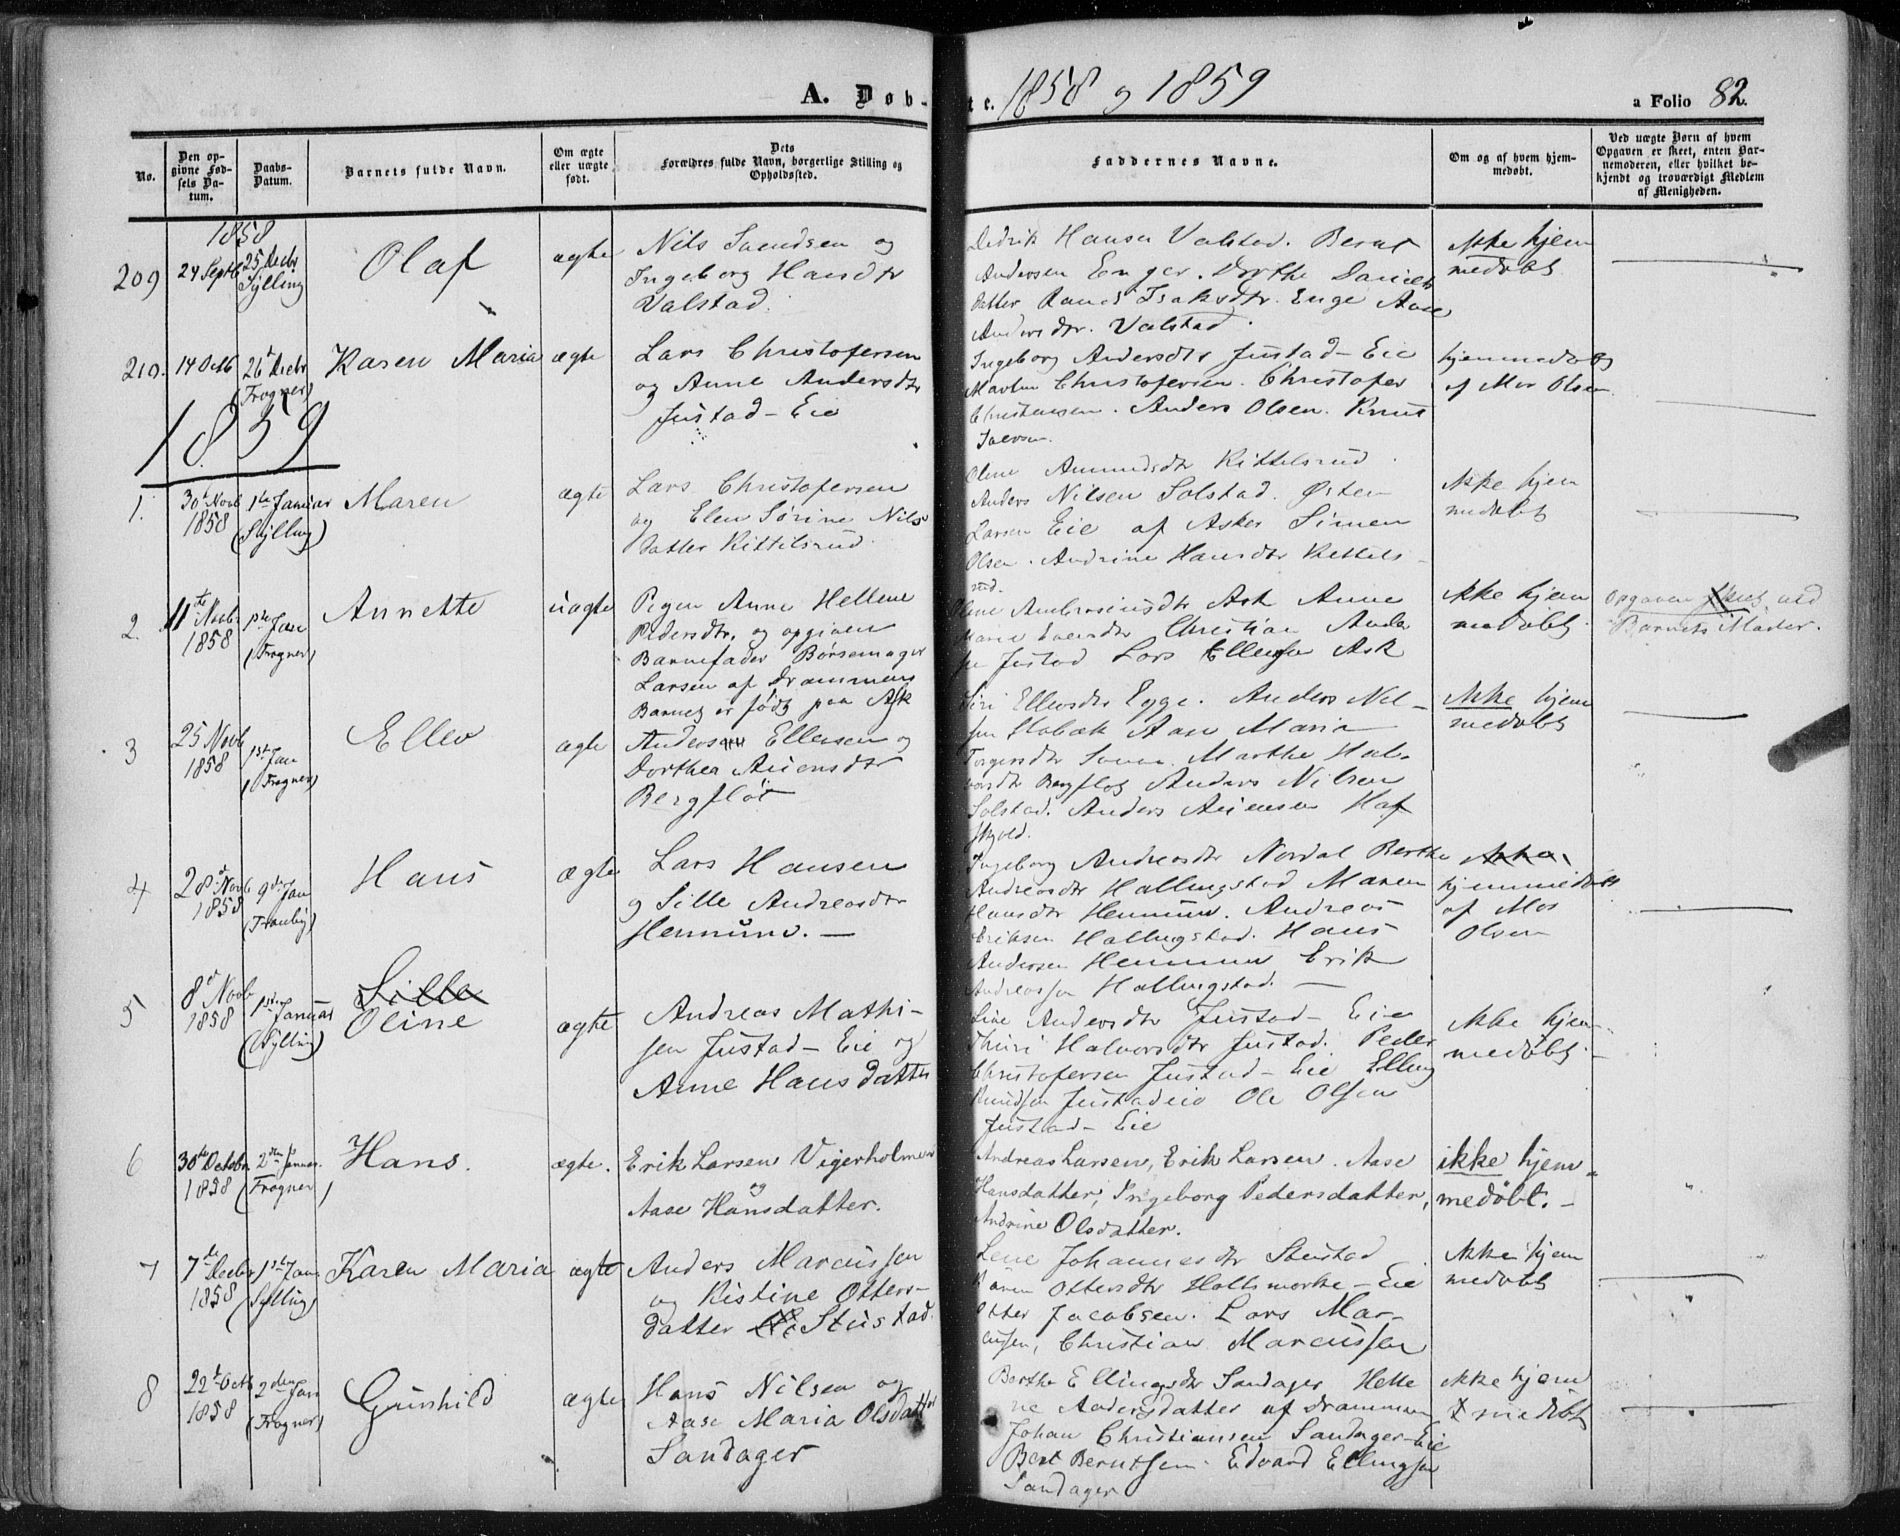 A. Døb-
te. 1858 og 1859
a Folio 82.
No.
Den op-
givne Fød-
sels Da-
tum.
Daabs-
Datum.
Barnets fulde Navn.
Om ægte
eller uægte
født.
Dets
Forældres fulde Navn, borgerlige Stilling og
Opholdssted.
Faddernes Navne.
Om og af hvem hjem-
medøbt.
Ved uægte Børn af hvem
Opgaven er skeet, enten Bar-
nemoderen, eller hvilket be-
kjendt og troværdigt Medlem
af Menigheden.
1858
209
24 Septb
25 Decbr
Sylling
Olaf
ægte
Nils Svendsen og
Ingeborg Hansdtr
Valstad.
Didrik Hansen Valstad. Bernt
Andersen Enger. Dorthe Daniels
datter Isaksdtr. Enge Aase
Andersdtr. Valstad.
ikke hjem
medøbt
210.
14 Octb
26 Decbr
(Frogner)
Karen Maria
ægte
Lars Christofersen
og Anne Andersdtr
Justad-Eie
Ingeborg Andersdtr Justad-Eie
Christofersen. Christofer
Christensen. Anders Olsen. Knut
Iversen.
hjemmedøbt
af Mor Olsen
1859
1.
30te Novb
1858
1ste Januar
(Sylling)
Maren
ægte
Lars Christofersen
og Elen Sørine Nils
datter Kittilsrud.
Olene Amundsdtr Kittelsrud.
Anders Nilsen Solstad. Østen
Larsen Eie af Asker Simen
Olsen. Andrine Hansdtr Kittels-
rud.
ikke hjem
medøbt
2
11te Novb.
1858
1ste Jan
(Frogner)
Annette
uægte
Pigen Anne Hellene
Pedersdtr. og opgiven
Barnefader Børsemager
Larsen af Drammen
Barnet er født paa Ask
Ambrosiusdtr Ask Anne
Marie Iversdtr Christian Ander
sen Justad Lars Ellefsen Ask
ikke hjem
medøbt.
Opgaven skeet ved
Barnets Moder.
3
25 Novb
1858
1ste Jan
(Frogner)
Ellev
ægte
Anders Ellevsen og
Dorthea Arensdtr
Bergfløt
Siri Ellevsdtr Egge. Anders Nil-
sen Aase Maria
Torgersdtr Marthe Hal-
vorsdtr Bergfløt Anders Nilsen
Solstad. Anders Arensen Haf
skjold.
ikke hjem
medøbt
4
28d Novb
1858
9de Jan
(Tranby)
Hans
ægte
Lars Hansen
og Sille Andreasdtr
Hennum. —
Ingeborg Andreasdtr Nordal Berthe
Andreasdtr Hallingstad Maren
Hansdtr Hennum. Andreas
Eriksen Hallingstad. Hans
Andersen Hennum Erik
Andreassen Hallingstad. —
hjemmedøbt
af Mor
Olsen
5
8d Novb
1858
1ste Januar
(Sylling)
Sille
Oline
ægte
Andreas Mathi-
sen Justad-Eie og
Anne Hansdatter
Line Andersdtr Justad-Eie
Thuri Halvorsdtr Justad. Peder
Christofersen Justad-Eie Elling
Knudsen Justadeie Ole Olsen
Justad-Eie
ikke hjem-
medøbt. -
6
30te Octobr
1858
2den Januar.
(Frogner)
Hans.
ægte.
Erik Larsen Vigerholmen
og
Aase Hansdatter.
Andreas Larsen, Erik Larsen. Aase
Hansdatter, Ingeborg Pedersdatter,
Andrine Olsdatter.
ikke hjem-
medøbt. -
7
7de Decbr
1858
1ste Jan
(Sylling)
Karen Maria
ægte
Anders Marcussen
og Kistine Otters-
datter Stustad.
Lene Johannesdtr Stustad
Karen Ottersdtr Holtsmarke-Eie
Otter Jacobsen. Lars Mar-
cussen, Christian Marcussen
ikke hjem
medøbt
8
22d Octb
1858
2den Jan
(Frogner)
Gunhild
ægte
Hans Nilsen og
Aase Maria Olsdatter
Sandager
Berthe Ellingsdtr Sandager Helle
ne Andersdatter af Drammen
Johan Christiansen Sandager-Eie
Bent Berntsen. Edvard Ellingsen
Sandager
ikke hjem
medøbt